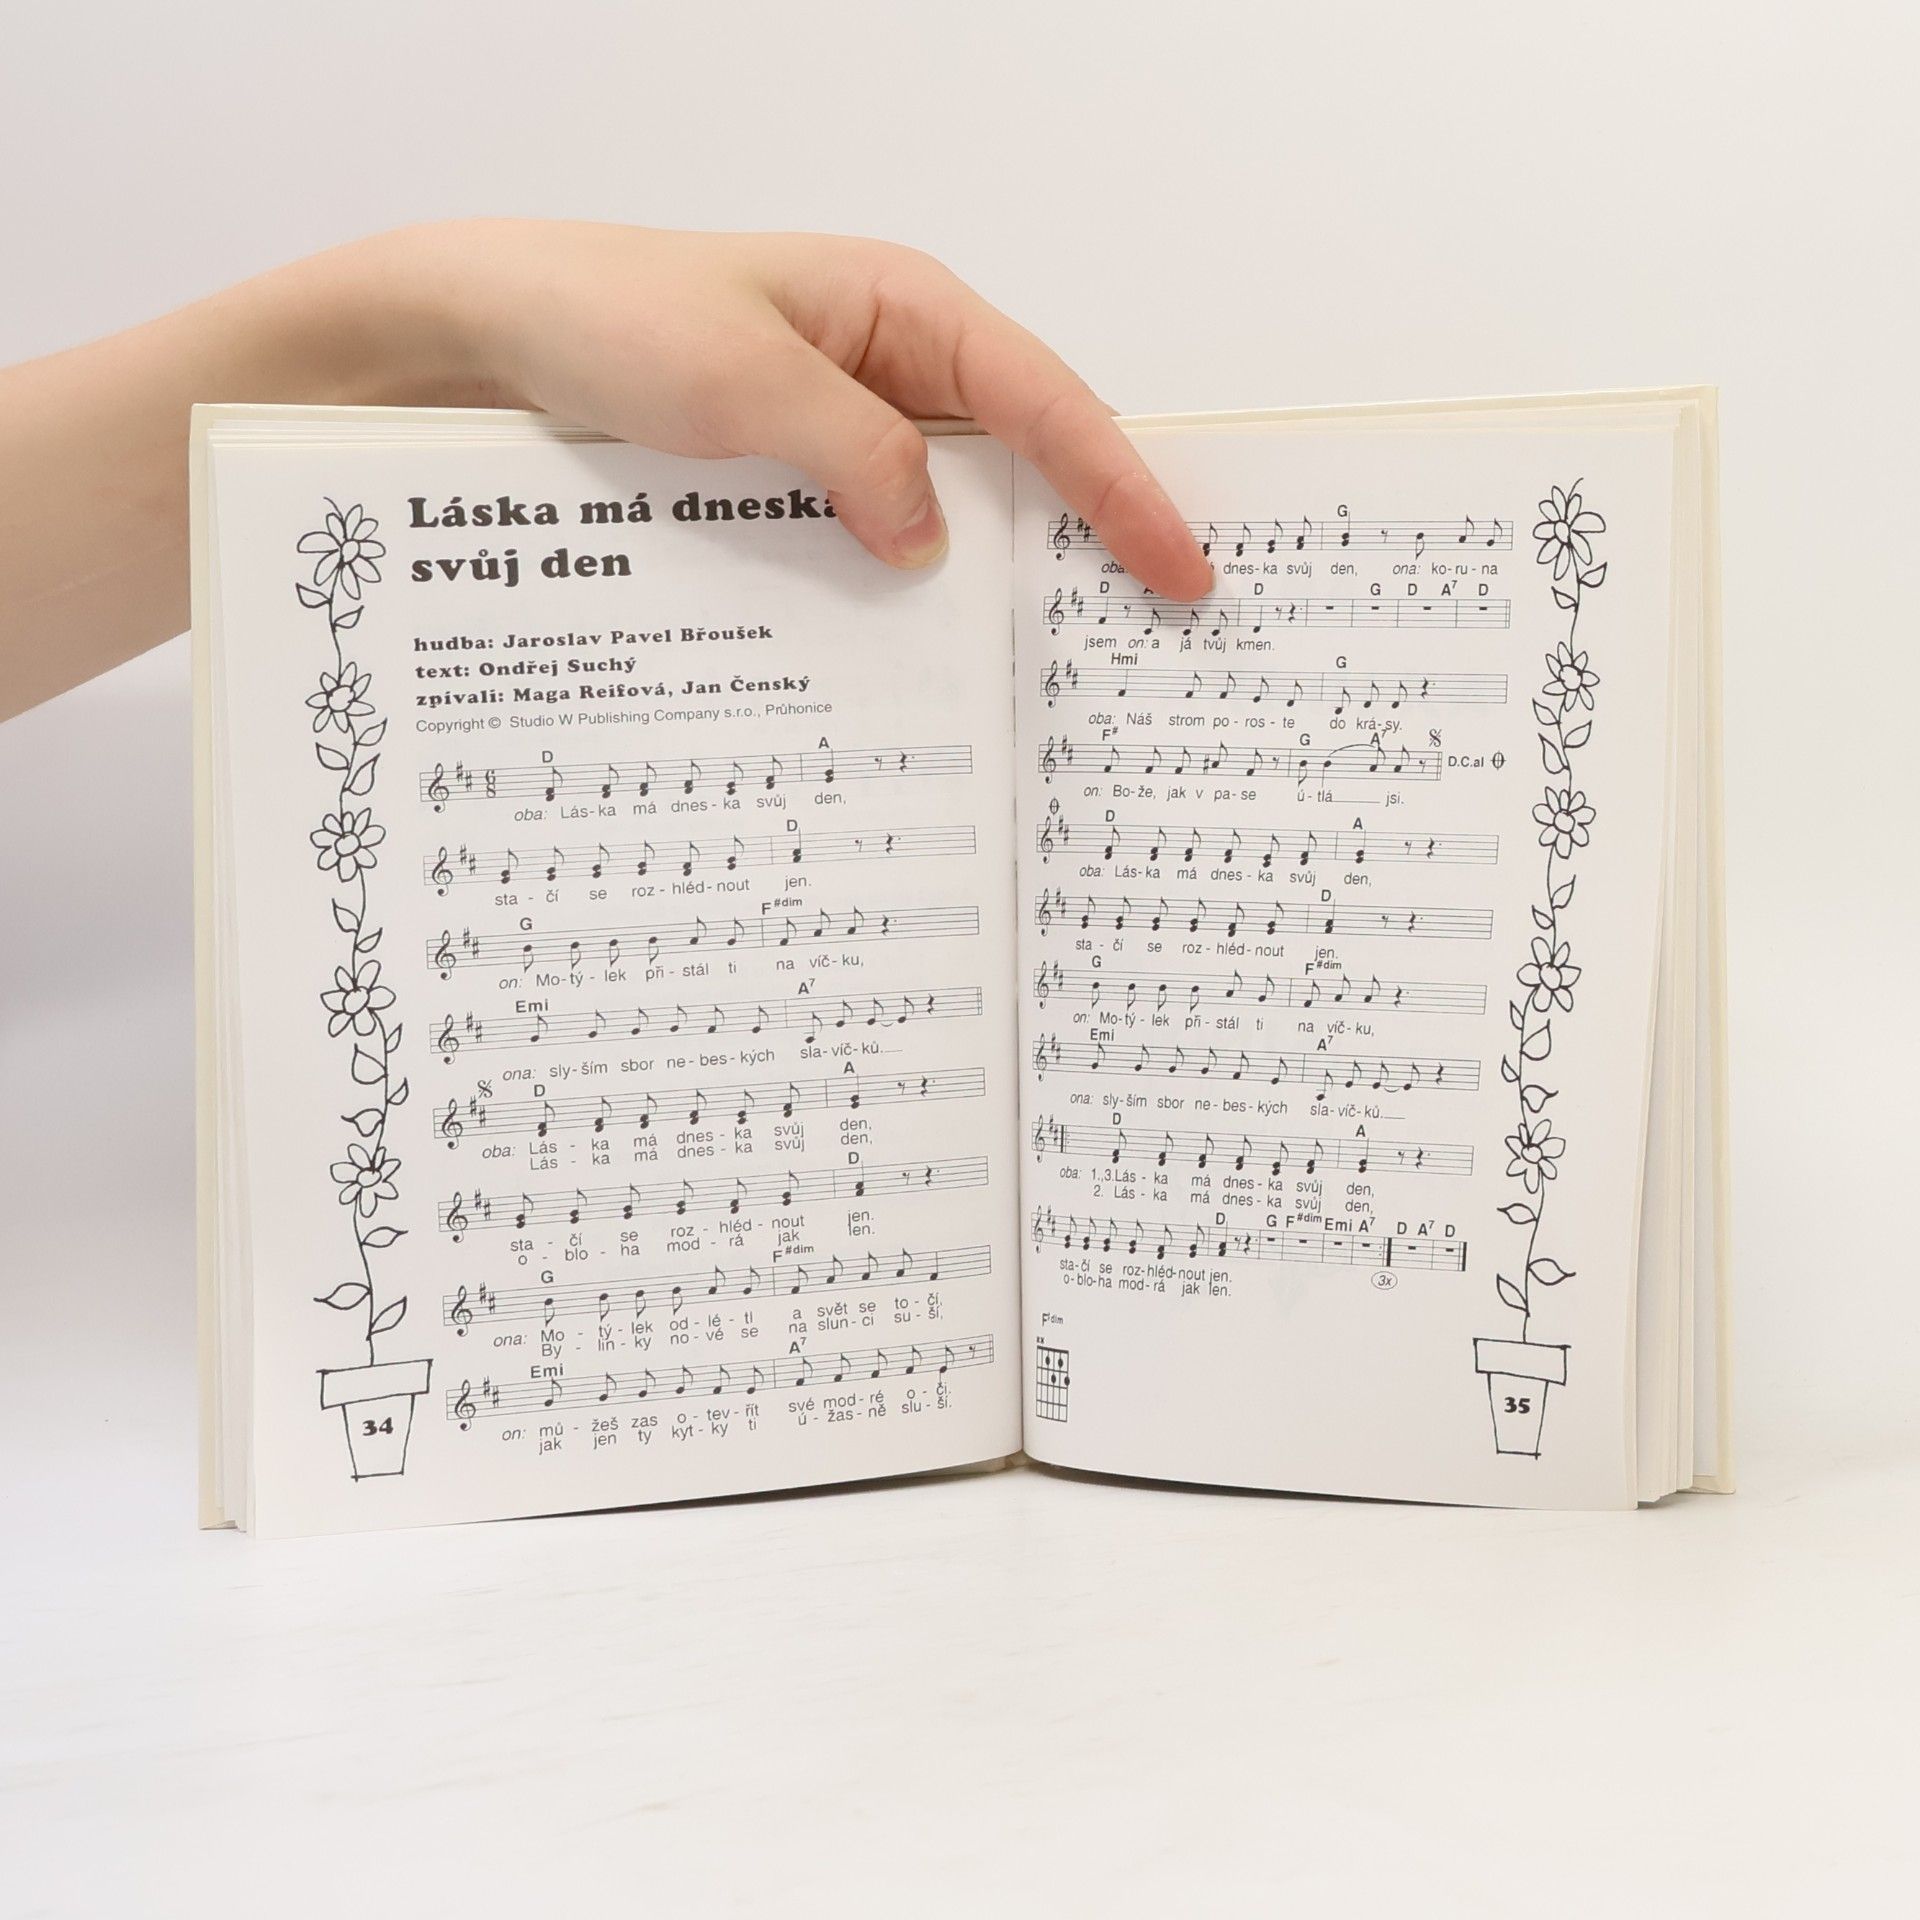 Láska má dneska
svůj den
hudba: Jaroslav Pavel Břoušek
text: Ondřej Suchý
zpívali: Maga Reifová, Jan Čenský
Copyright © Studio W Publishing Company s.r.o., Průhonice
D A
6
8
oba: Lás-ka má dnes-ka svůj den,
D
sta - čí se roz-hléd-nout jen.
G F#dim
on: Mo-tý-lek při-stál ti na víč-ku,
Emi A7
ona: sly-ším sbor ne-bes-kých sla-víč-ků.
D A
oba: Lás - ka má dnes - ka svůj den,
Lás - ka má dnes - ka svůj den,
D
sta - čí se roz - hléd - nout jen.
o - blo - ha mod - rá jak len.
G F#dim
ona: Mo - tý - lek od - lé - tl a svět se to - čí,
By - lin - ky no - vé se na slun - ci su - ší,
Emi A7
on: mů - žeš zas o - tev - řít své mod - ré o - či.
jak jen ty kyt - ky ti ú - žas - ně slu - ší.
34
G
oba: dnes-ka svůj den, ona: ko-ru-na
D D G D A7 D
jsem on: a já tvůj kmen.
Hmi G
oba: Náš strom po - ros - te do krá-sy.
F# G A7 D.C.al
on: Bo-že, jak v pa-se ú-tlá jsi.
D A
oba: Lás-ka má dnes-ka svůj den,
D
sta - čí se roz-hléd-nout jen.
G F#dim
on: Mo-tý-lek při-stál ti na víč-ku,
Emi A7
ona: sly-ším sbor ne-bes-kých sla-víč-ků.
D A
oba: 1.,3.Lás - ka má dnes-ka svůj den,
2. Lás - ka má dnes-ka svůj den,
D G F#dim Emi A7 D A7 D
sta-čí se roz-hléd-nout jen.
o-blo-ha mod-rá jak len.
3x
F#dim
xx
35